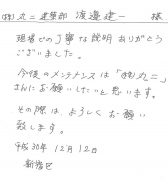 (株)丸二 建築部 渡邉建一 様
現場での丁寧な説明ありがとう
ございました。
今後のメンテナンスは「(株)丸二」
さんにお願いしたいと思います。
その際はよろしくお願い
致します。
平成30年 12月12日
新宿区